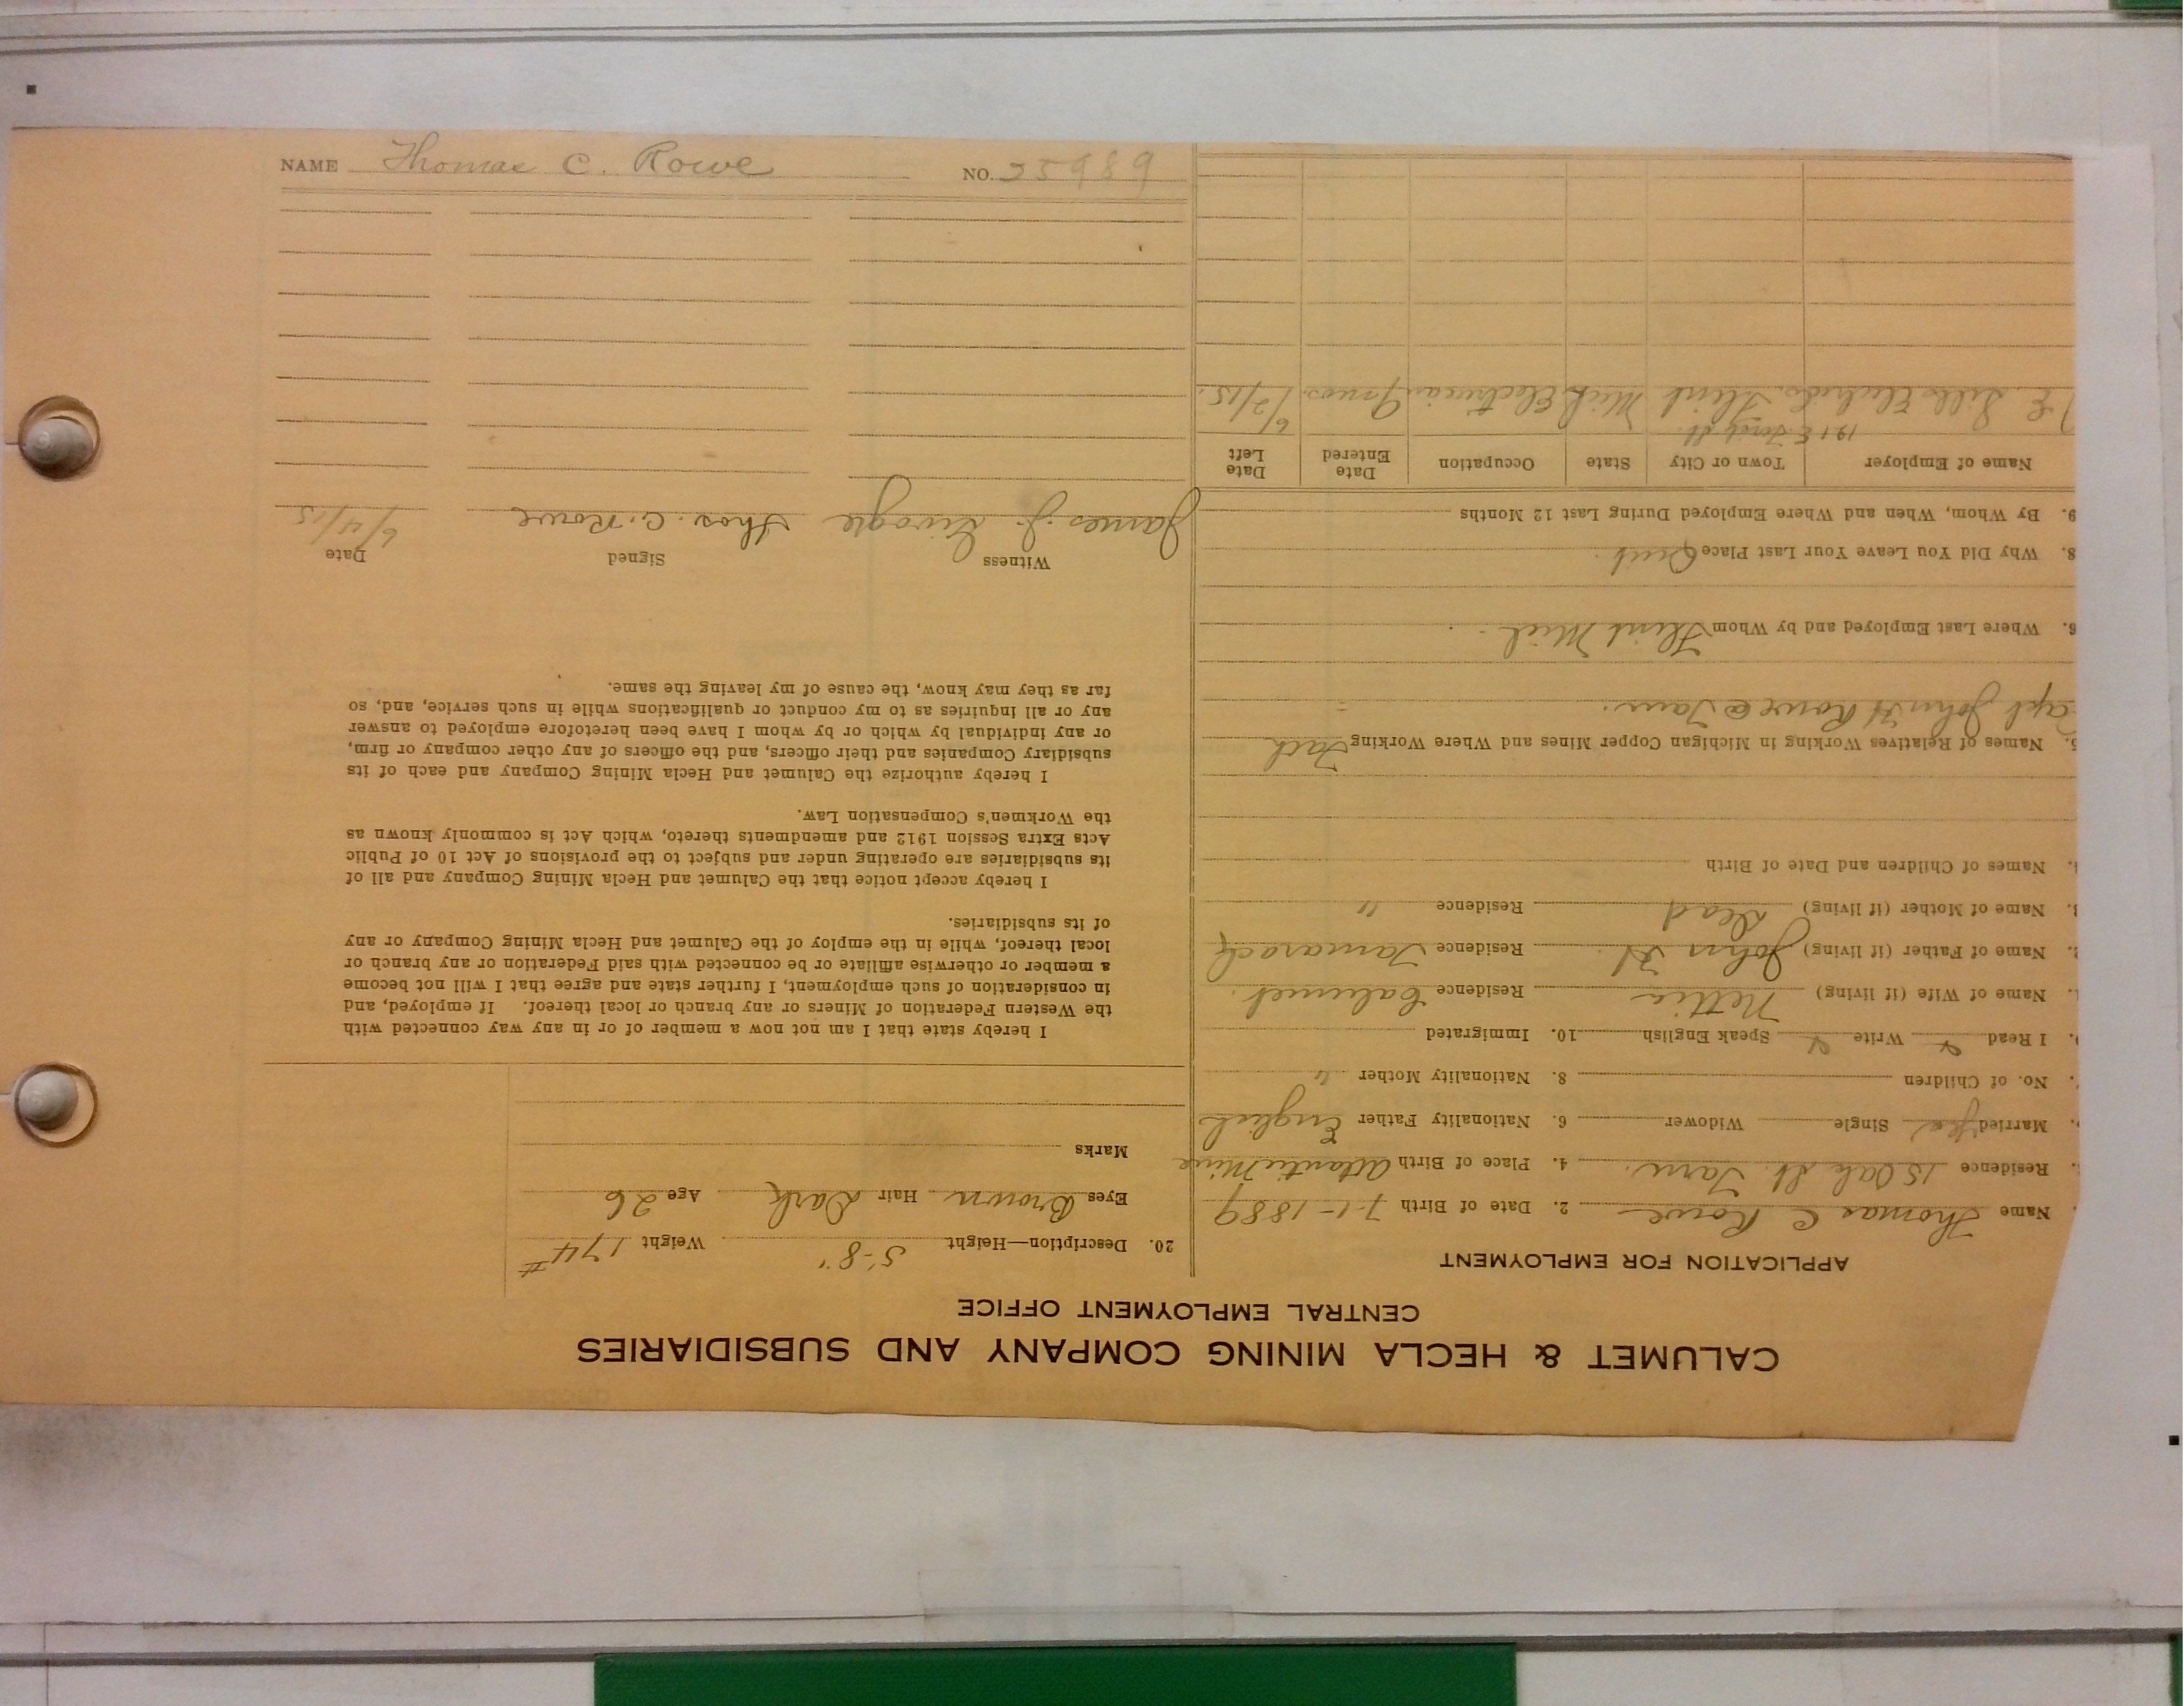 NAME Thomas C. Rowe NO. 25989
CALUMET & HECLA MINING COMPANY AND SUBSIDIARIES
CENTRAL EMPLOYMENT OFFICE
APPLICATION FOR EMPLOYMENT
Name Thomas C Rowe 2. Date of Birth 7-1-1889
Residence 15 Oak St. Tam. 4. Place of Birth Atlantic Mine
Married Yes Single Widower 6. Nationality Father English
No. of Children 8. Nationality Mother "
I Read Write Speak English 10. Immigrated
Name of Wife (if living) Nettie Residence Calumet.
Name of Father (if living) John H. Residence Tamarack
Name of Mother (if living) Dead Residence "
Names of Children and Date of Birth
5. Names of Relatives Working in Michigan Copper Mines and Where Working Fath
Capt John H Rowe @ Tam.
6. Where Last Employed and by Whom Flint Mich
8. Why Did You Leave Your Last Place Quit.
9. By Whom, When and Where Employed During Last 12 Months
Name of Employer Town or City State Occupation Date Entered Date Left
191 E
Flint Mich Electrician 6/2/15.
20. Description—Height 5'-8" Weight 174#
Eyes Brown Hair Dark Age 26
Marks
I hereby state that I am not now a member of or in any way connected with
the Western Federation of Miners or any branch or local thereof. If employed, and
in consideration of such employment, I further state and agree that I will not become
a member or otherwise affiliate or be connected with said Federation or any branch or
local thereof, while in the employ of the Calumet and Hecla Mining Company or any
of its subsidiaries.
I hereby accept notice that the Calumet and Hecla Mining Company and all of
its subsidiaries are operating under and subject to the provisions of Act 10 of Public
Acts Extra Session 1912 and amendments thereto, which Act is commonly known as
the Workmen's Compensation Law.
I hereby authorize the Calumet and Hecla Mining Company and each of its
subsidiary Companies and their officers, and the officers of any other company or firm,
or any individual by which or by whom I have been heretofore employed to answer
any or all inquiries as to my conduct or qualifications while in such service, and, so
far as they may know, the cause of my leaving the same.
Witness Signed Date
James J. Thos. C. Rowe 6/4/15